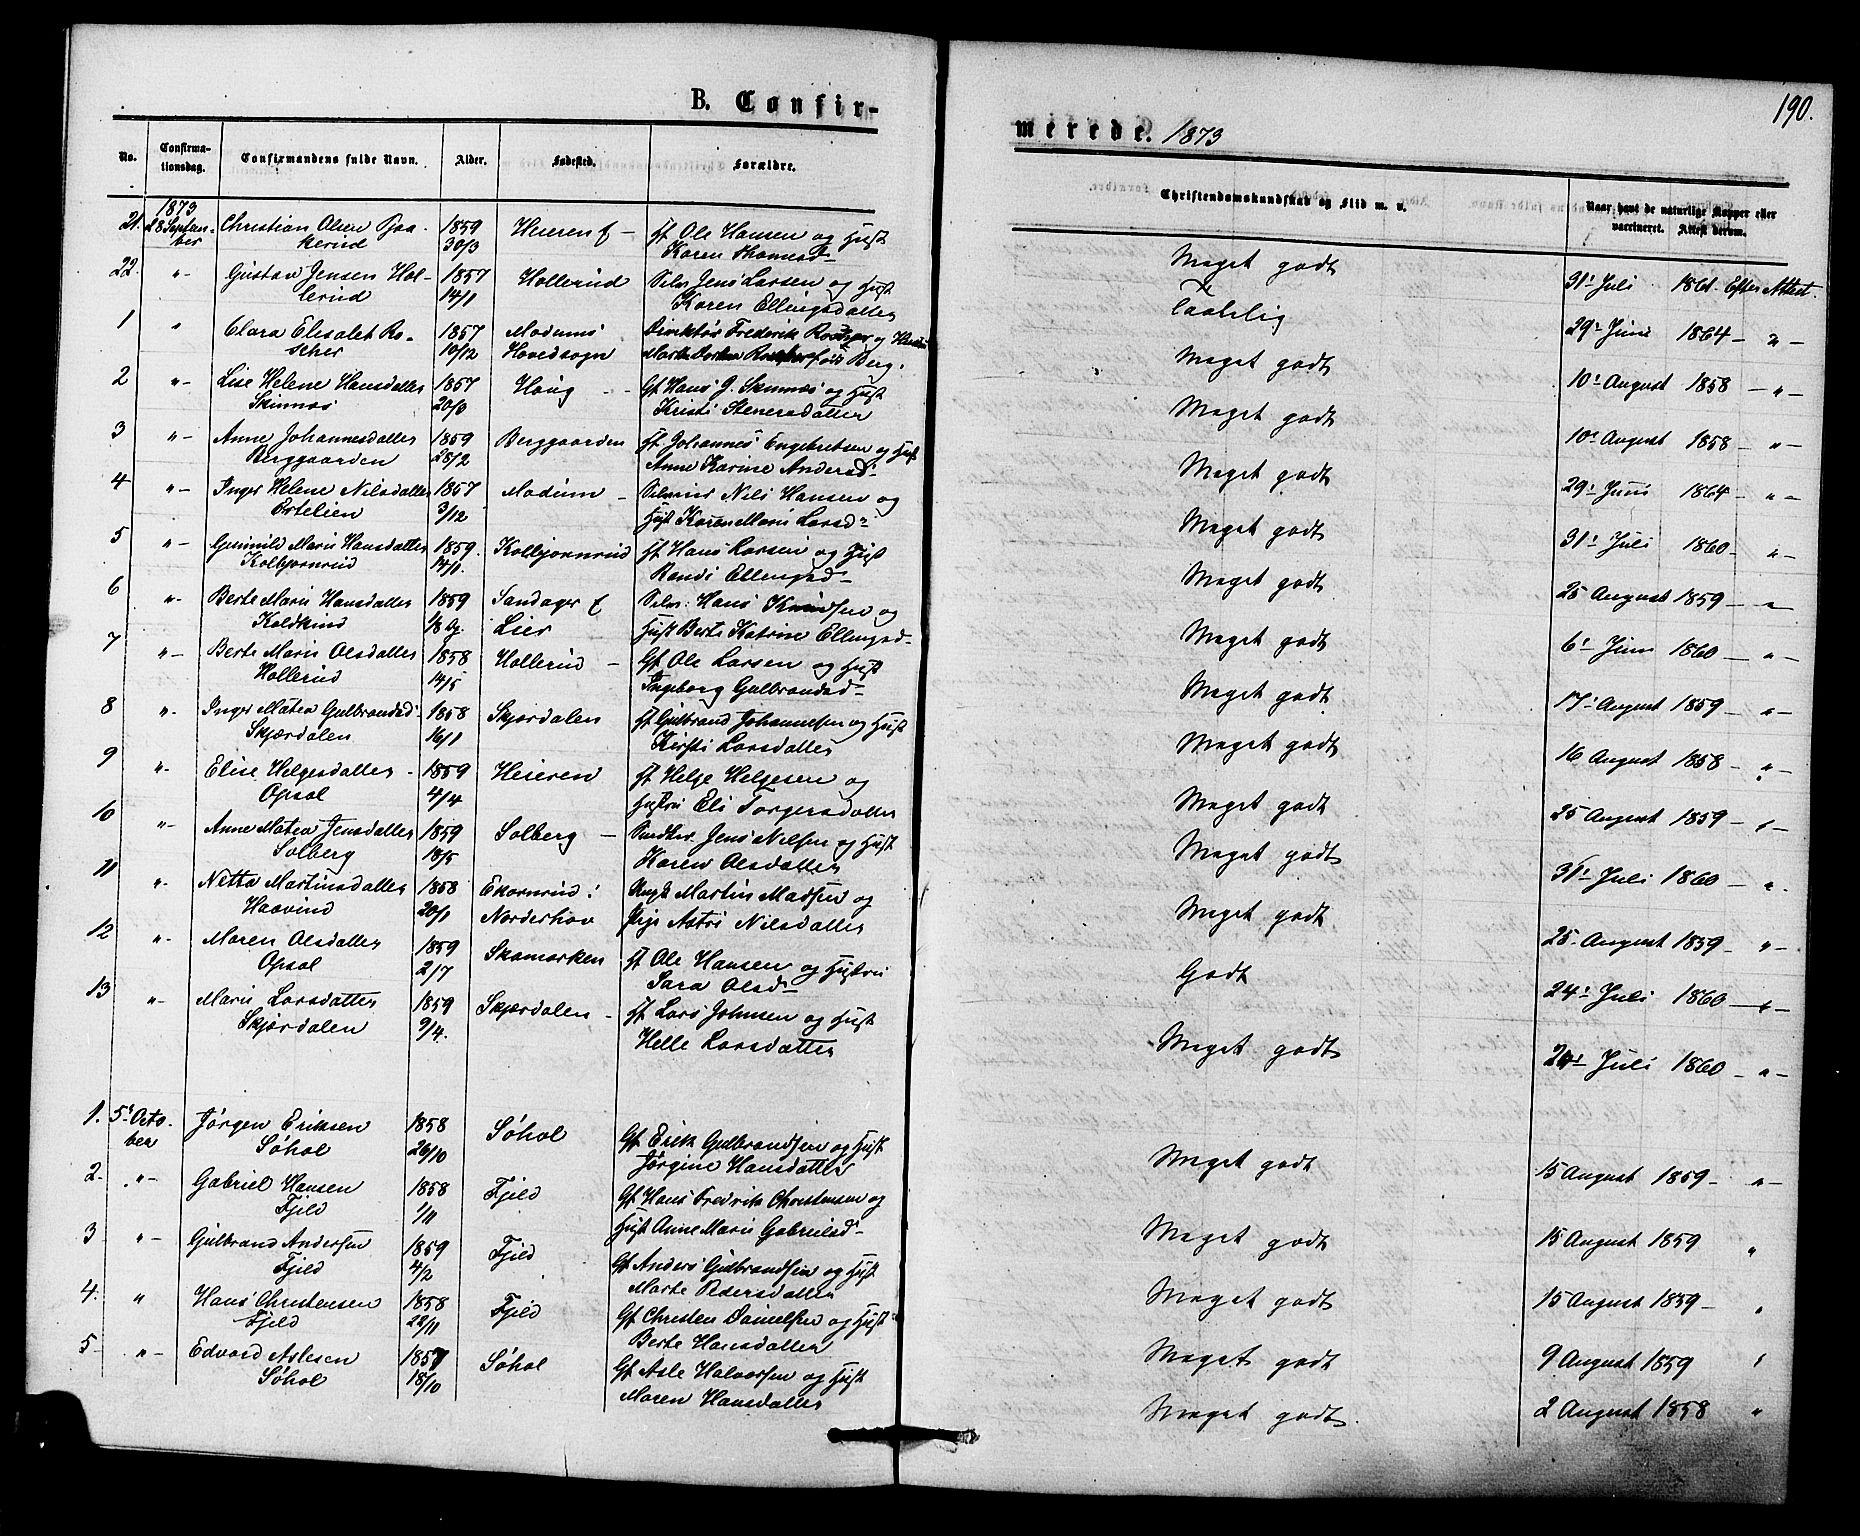 190.
B. Confir-
merede. 1873
No. Confirma-tionsdag. Confirmandens fulde Navn. Alder. Fødested. Forældre.
Christendomskundskab og Flid m. v. Naar havt de naturlige Kopper eller
vaccineret. Attest derom.
1873
21. 28 Septem- Christian Olsen 1859 Heieren Ole Hansen og Hust
ber 30/3 Karen Thomasd-
Meget godt 31' Juli 1861 Efter Attest.
22. "- Gustav Jensen Hol- 1857 Hollerud Jens Larsen og Hust
lerud 14/1 Karen Ellingsdatter
Taalelig 29' Juni 1864 - " -
1 " Clara Elisabet Ro- 1857 Modums Direktør Frederik
scher 10/12 Hovedsogn Berg.
Meget godt 10' August 1858 - " -
2 "- Lise Helene Hansdatter 1857 Haug Gf Hans G. Skinnes og Hust
Skinnes Kristi Stenersdatter
Meget godt 10' August 1858 "-
3 "- Anne Johannesdatter 1859 Berggaarden Johannes Engebretsen og Hust
Berggaarden 28/2 Anne Karine Andersd-
Meget godt 29' Juni 1864 " -
4 "- Inger Helene Nilsdatter 1857 Modum - Nils Hansen og
Ertelien 3/12 Hust Karen Marie Larsd-
Meget godt 31' Juli 1860 - " -
5 "- Gunnild Marie Hansdatter 1859. Kolbjørnrud Hans Larsen og Hust
Kolbjørnrud 14/1. Randi Ellingsd-
Meget godt 25 August 1859 -
6 "- Berte Marie Hansdatter 1859 Sandager Hans Knudsen og
Lier Hust Berte Katrine Ellingsd-
Meget godt 6' Juni 1860 - " -
7 "- Berte Marie Olsdatter 1858 Hollerud - Gf Ole Larsen og Hust
Hollerud 14/5 Ingeborg Gulbrandsd-
Meget godt 17- August 1859 - " -
8 "- Inger Matea Gulbrandsd- 1858 Skjærdalen Gulbrand Johannesen og Hust
Skjærdalen 16/1 Kirsti Larsdatter
Meget godt 16 August 1858 - " -
9 "- Elise Helgesdatter 1859 Heieren Helge Helgesen og
Opsal 4/4 Hustru Eli Torgersdatter
Meget godt 25 August 1859 -
10 "- Anne Matea Jensdatter 1859 Solberg - Jens Nilsen og Hust
Solberg 18/5 Karen Olsdatter
Meget godt 31' Juli 1860 -
11 "- Netta Martinsdatter 1858 Ekornrud i Martin Madsen og
20/1 Norderhov Pige Astri Nilsdatter
Meget godt 25- August 1859 - " -
12 "- Maren Olsdatter 1859 Skamarken Ole Hansen og Hustru
Opsal 2/7 Sara Olsd-
Godt 24' Juli 1860 -
13 "- Marie Larsdatter 1859 Skjærdalen - Lars Johnsen og Hust
Skjærdalen 9/4. Helle Larsdatter
Meget godt 24' Juli 1860 - " -
1. 5' Octo- Jørgen Eriksen 1858 Søhol Gf Erik Gulbrandsen og Hust
ber Søhol 26/10 Jørgine Hansdatter
Meget godt 15 August 1859 - " -
2. "- Gabriel Hansen 1858 Fjeld Gf Hans Fredrik Christensen og
Fjeld 1/11 Hust Anne Marie Gabrielsd-
Meget godt 15 August 1859 "
3 "- Gulbrand Andersen 1859 Fjeld Gf Anders Gulbrandsen og Hust
Fjeld 4/2 Marte Pedersdatter
Meget godt 15 August 1859 -
4. " Hans Christensen 1858 Fjeld Gf Christen Danielsen og Hust
Fjeld 28/11 Berte Hansdatter
Meget godt 9 August 1859
5 "- Edvard Aslesen 1857 Søhol Gf Asle Halvorsen og Hust
Søhol 18/10 Maren Hansdatter
Meget godt. 2 August 1858 "